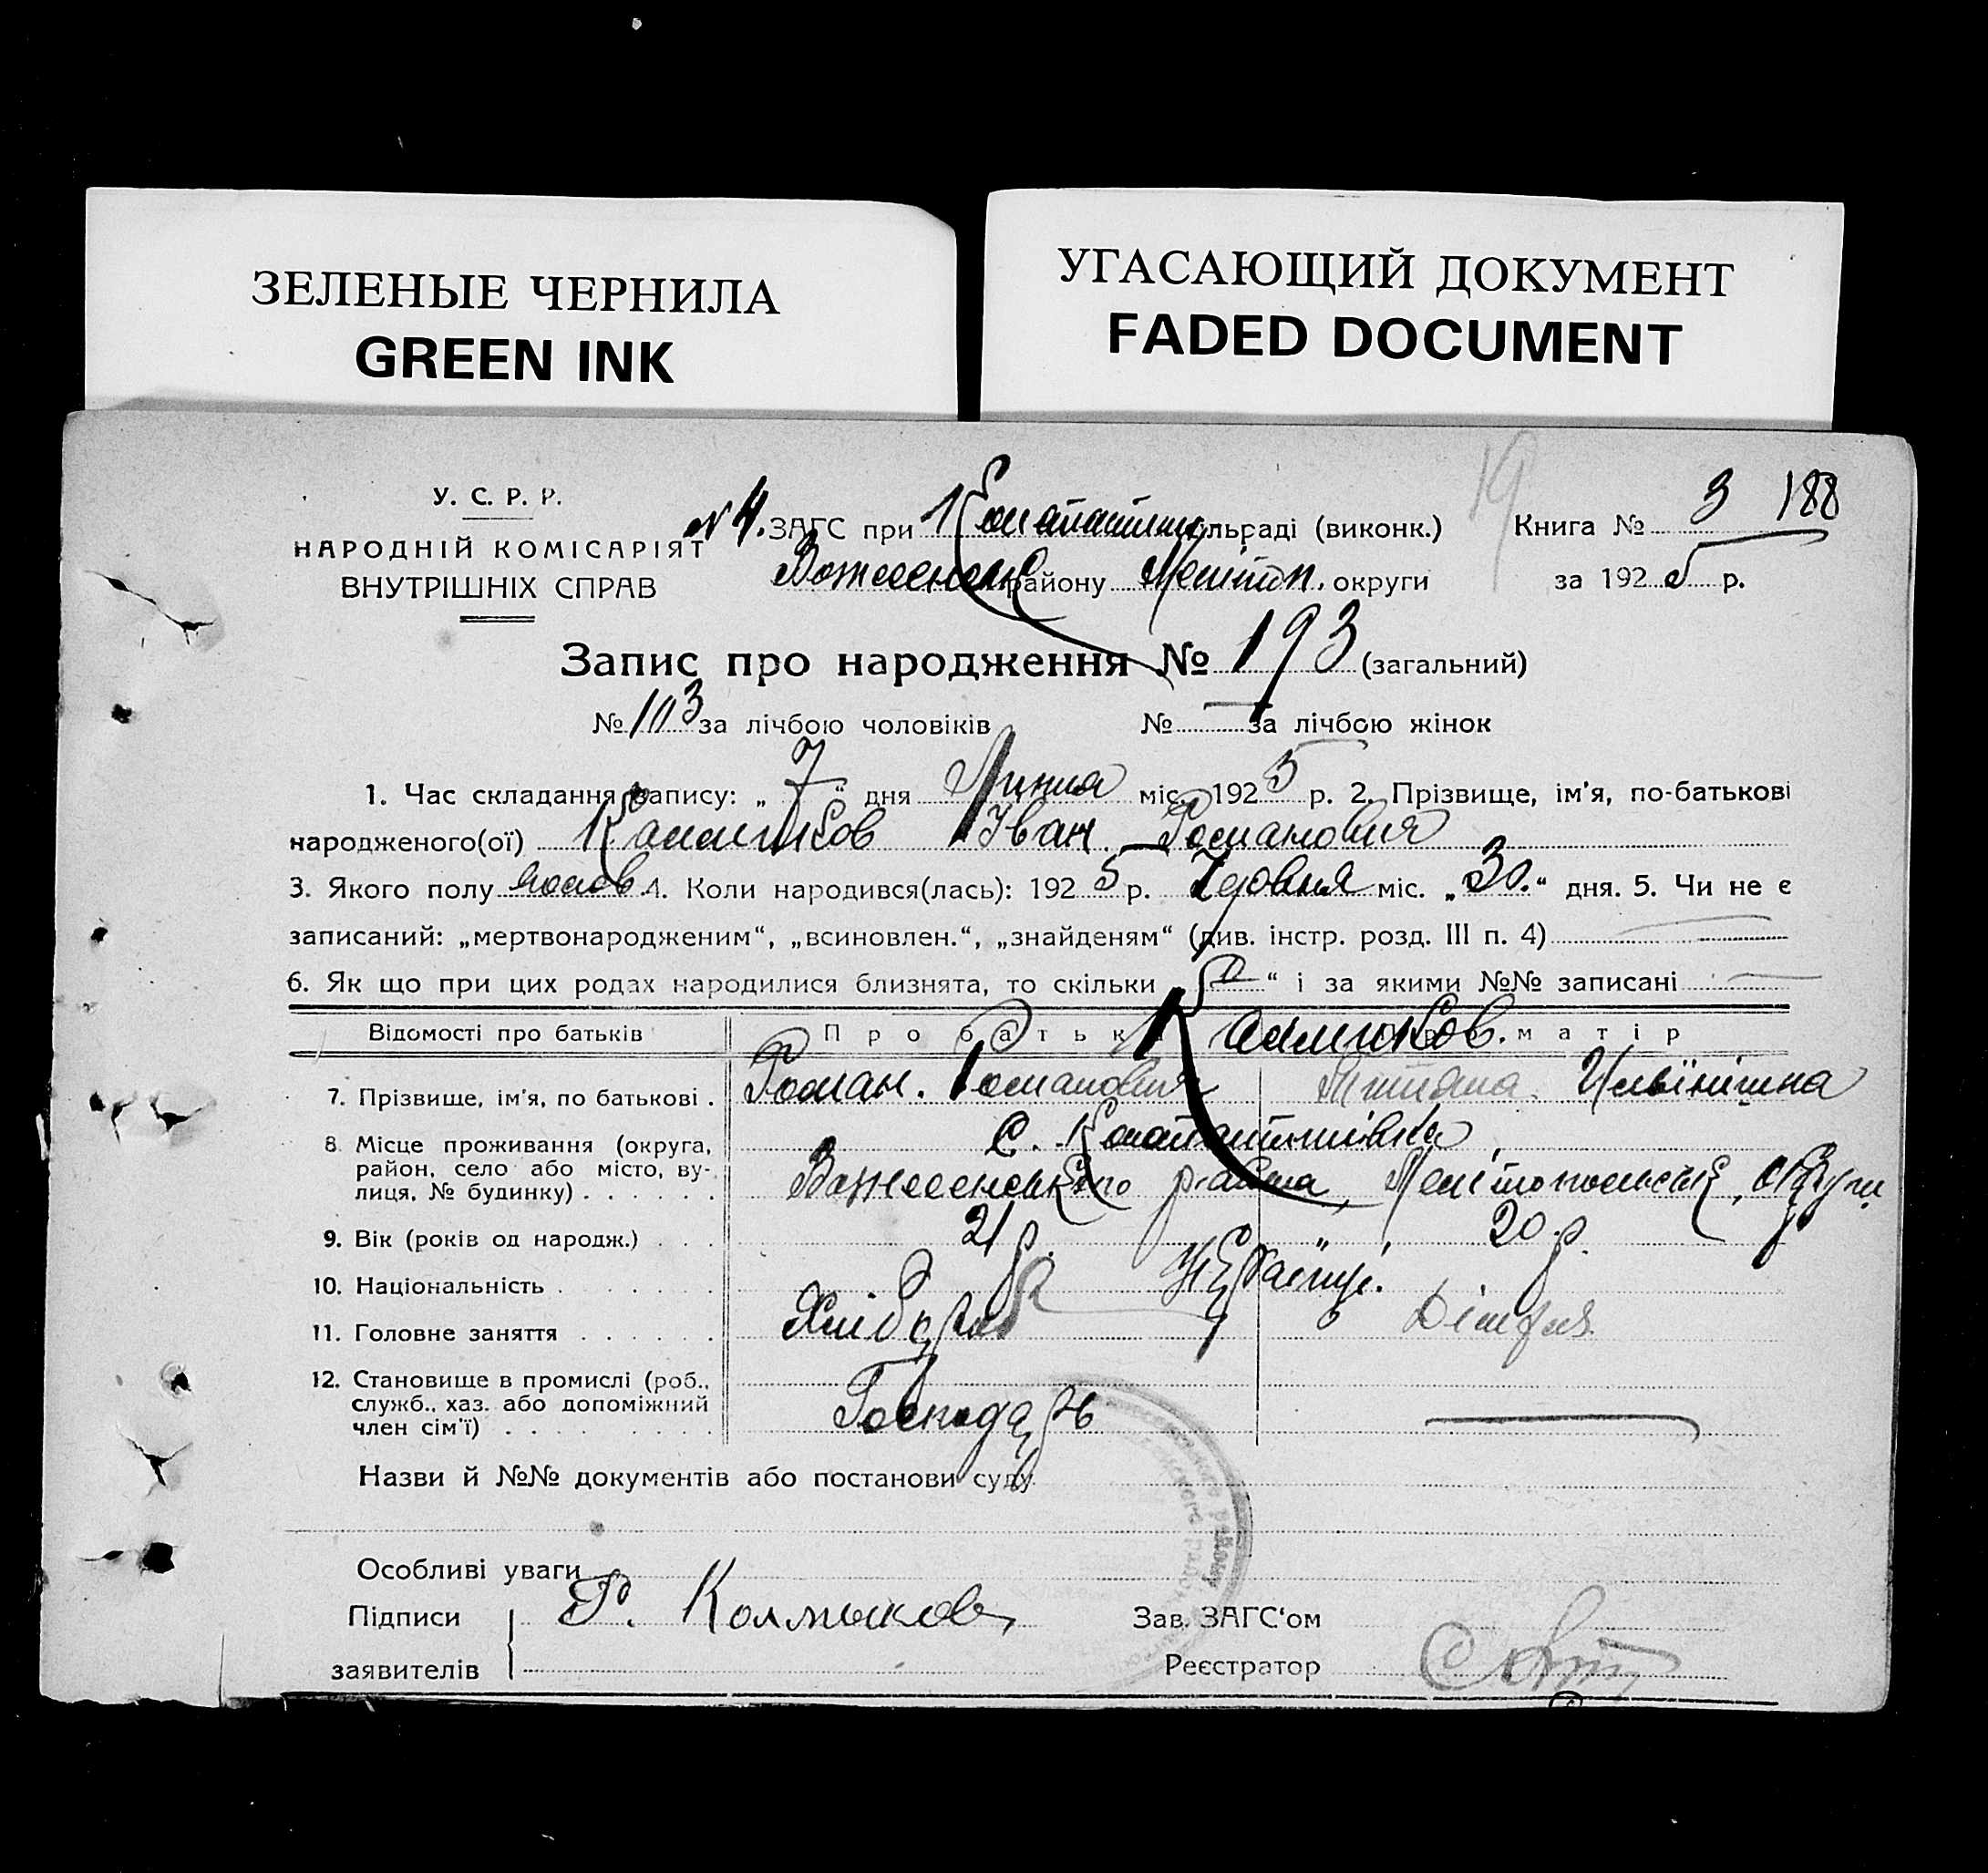 ЗЕЛЕНЫЕ ЧЕРНИЛА
GREEN INK
УГАСАЮЩИЙ ДОКУМЕНТ
FADED DOCUMENT
У. С. Р. Р.
НАРОДНІЙ КОМІСАРІЯТ
ВНУТРІШНІХ СПРАВ
19
N 4. ЗАГС при сільраді (виконк.)
району Меліт. округи
Книга № 3 188
за 1925 р.
Запис про народження № 193 (загальний)
№ 103 за лічбою чоловіків № — за лічбою жінок
1. Час складання запису: „ 7 “ дня Липня міс. 1925 р. 2. Прізвище, ім'я, по-батькові
народженого(ої) Калмиков Іван Романович
3. Якого полу чолов. 4. Коли народився(лась): 1925 р. Червня міс. „ 30. “ дня. 5. Чи не є
записаний: „мертвонародженим“, „всиновлен.“, „знайденям“ (див. інстр. розд. III п. 4)
6. Як що при цих родах народилися близнята, то скільки „ “ і за якими №№ записані —
Відомості про батьків Про батька Калмиков. Про матір
7. Прізвище, ім'я, по батькові . Роман. Романович
8. Місце проживання (округа, район, село або місто, вулиця, № будинку) . . . . . . С. Константинівка
району, Мелітопольськ. округи
9. Вік (років од народж.) . . . 21 р. 20 р.
10. Національність . . . . . . Українці.
11. Головне заняття . . . . . . Хлібороб
12. Становище в промислі (роб., служб., хаз. або допоміжний член сім'ї) . . . . . . . . . Господарь —
Назви й №№ документів або постанови суду
Особливі уваги
Підписи Р. Колмыков
заявителів
Зав. ЗАГС'ом
Реєстратор